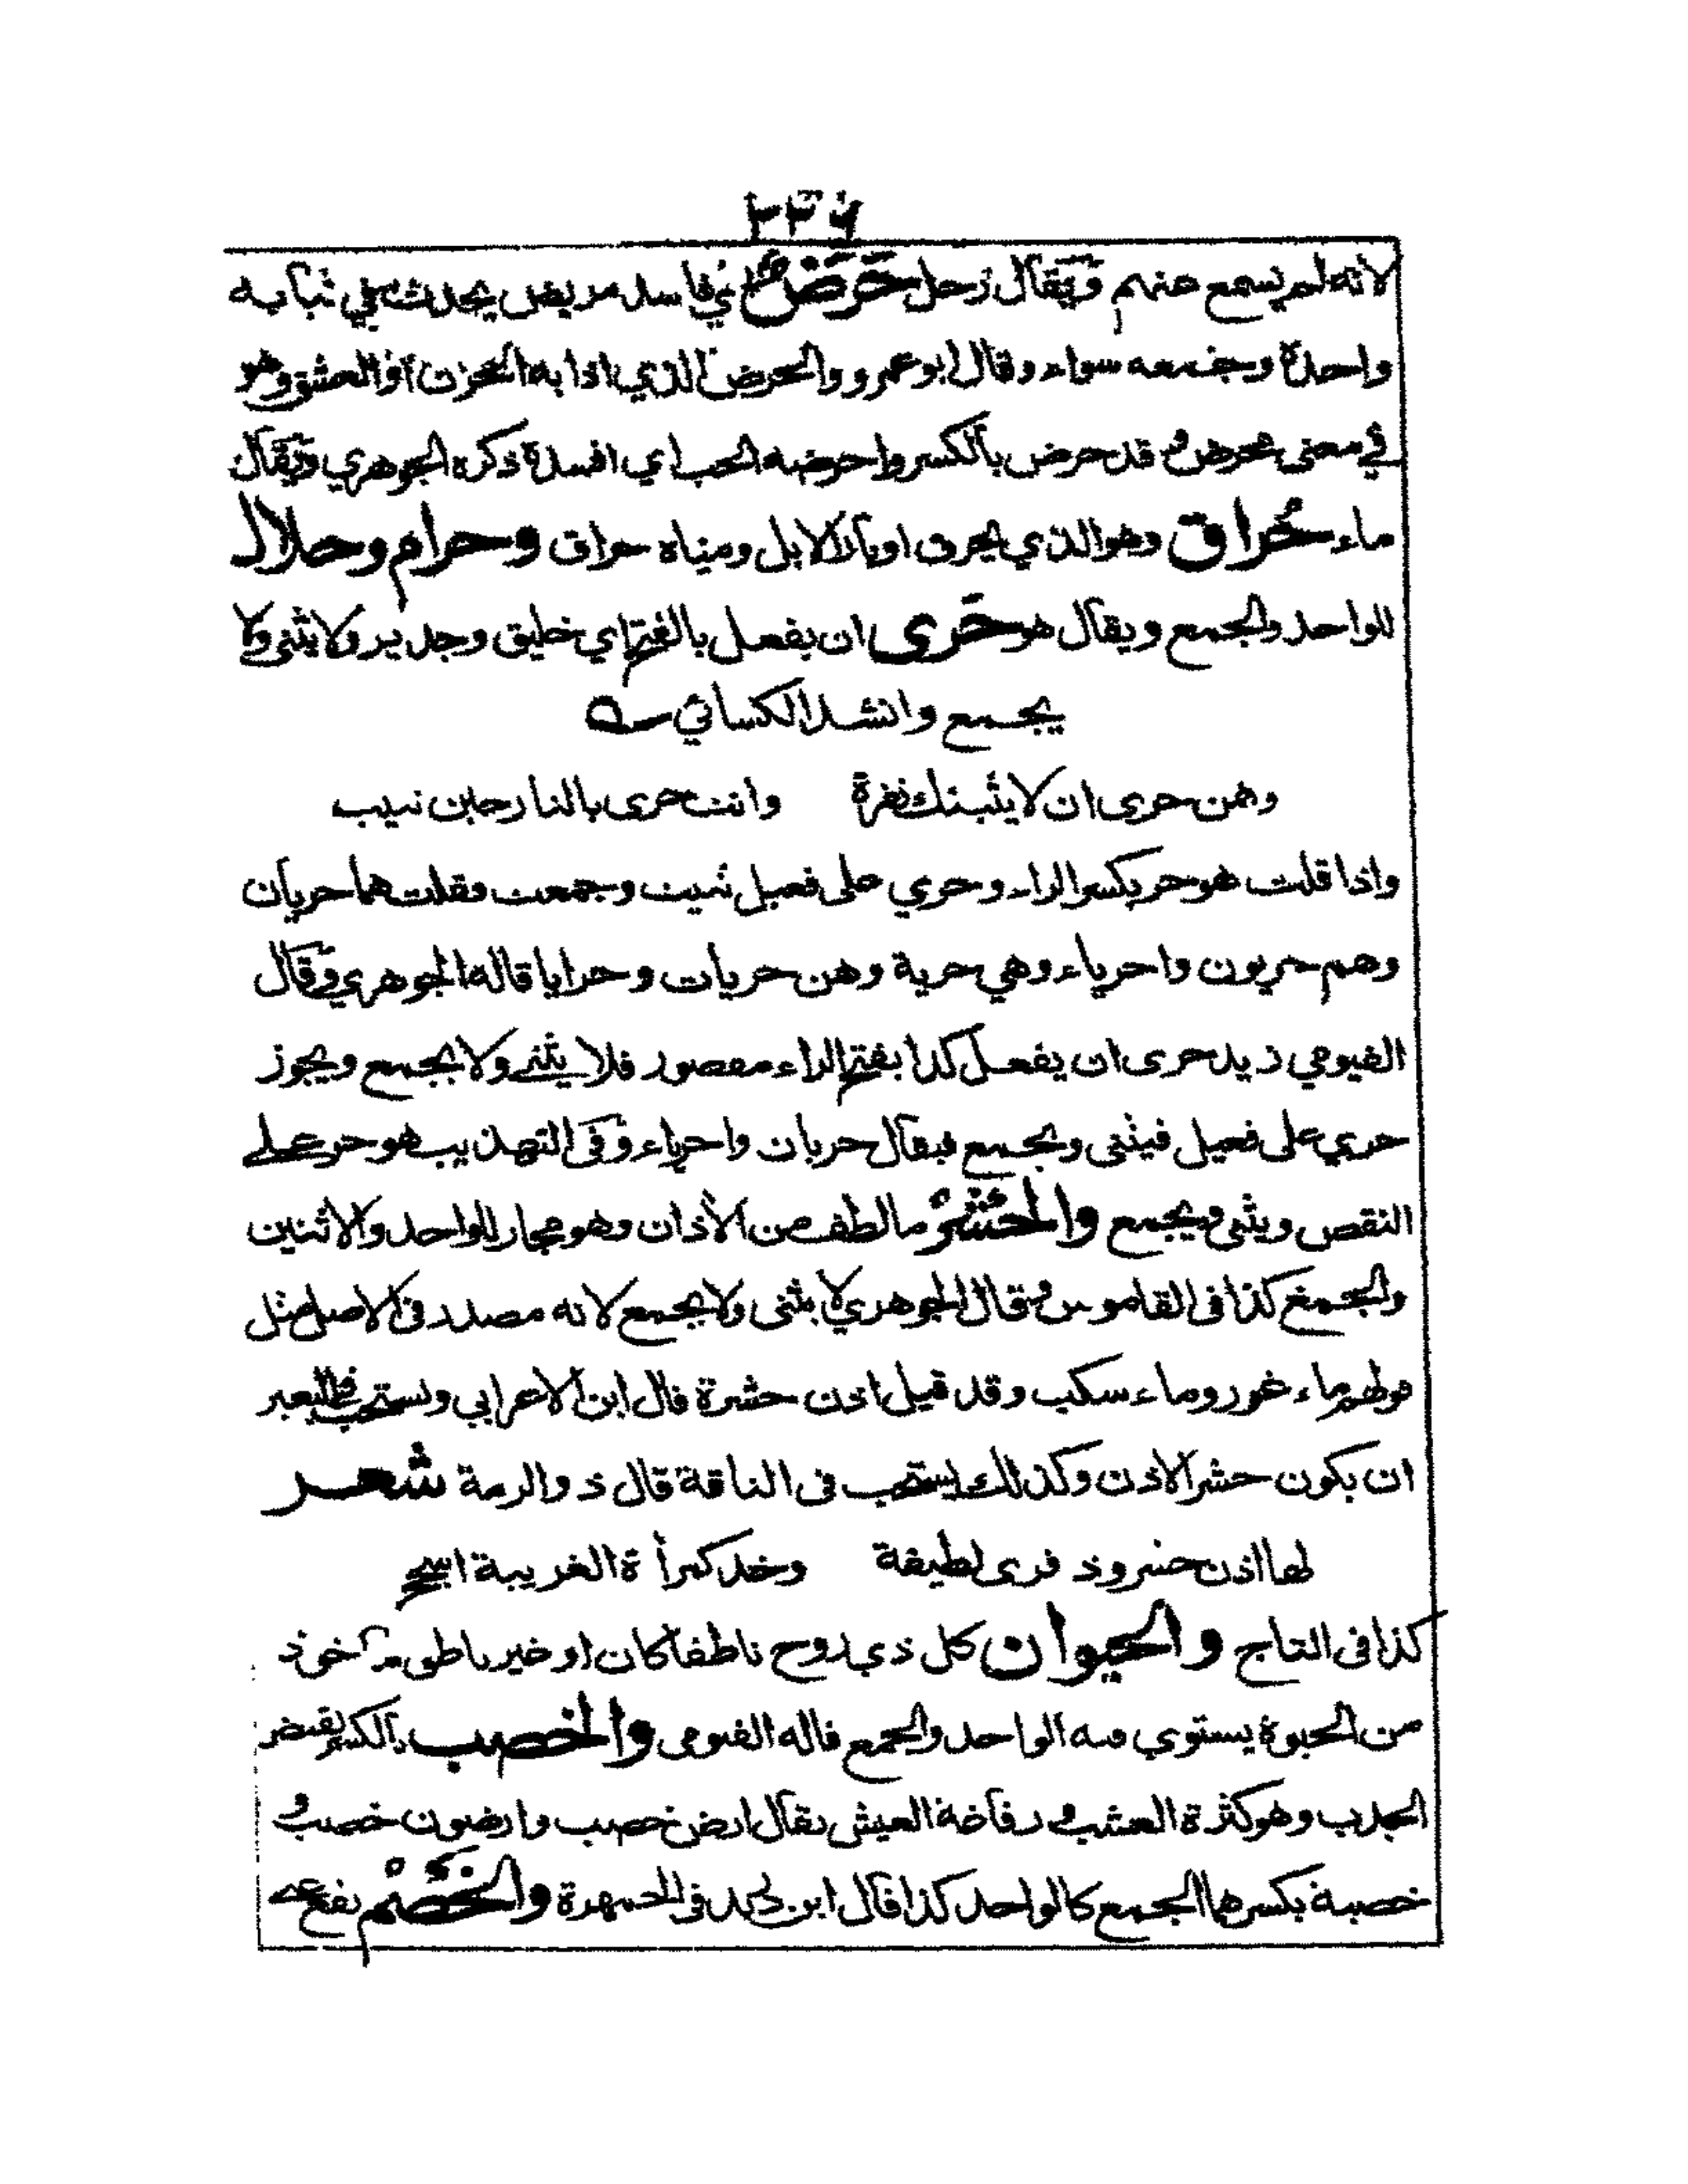 ٢٣٦
لانه لم يسمع منهم ويقال رجل حَرَضٌ اي فاسد مريض يحدث في ثيابه
واحدة وجمعه سواء وقال ابو عمرو والحرض الذي اذابه الحزن او العشق وهو
في معنى محرض وقد حرض بالكسر واحرضه الحب اي افسده ذكره الجوهري ويقال
ماء حُراق وهو الذي يحرق اوبار الابل ومياه حراق وحرام وحلال
للواحد والجمع ويقال هو حَرى ان يفعل بالفتح اي خليق وجدير ولا يثنى ولا
يجمع وانشد الكسائي
وهن حرى ان لا يثبنك نقرة وانت حرى بالنار حين تيب
واذا قلت هو حر بكسر الراء وحري على فعيل ثنيت وجمعت فقلت هما حريان
وهم حريون واحرياء وهي حرية وهن حريات وحرايا قاله الجوهري وقال
الفيومي زيد حرى ان يفعل كذا بفتح الراء مقصور فلا يثنى ولا يجمع ويجوز
حري على فعيل فيثنى ويجمع فيقال حريان واحرياء وفى التهذيب هو حر على
النقص ويثنى ويجمع والحَشْرْ ما لطف من الأذان وهو مجاز للواحد والاثنين
والجمع كذا فى القاموس وقال الجوهري لا يثنى ولا يجمع لانه مصدر فى الاصل مثل
قولهم ماء غور وماء سكب وقد قيل اذن حشرة قال ابن الاعرابي ويستحب فى البعير
ان يكون حشر الاذن وكذلك يستحب فى الناقة قال ذوالرمة شعر
لها اذن حشر وذفرى لطيفة وخد كمرأة الغريبة اسجح
كذا فى التاج والحيوان كل ذي روح ناطقا كان او غير ناطق مأخوذ
من الحيوة يستوي فيه الواحد والجمع قاله الفيومى والخصب بالكسر نقيض
الجدب وهو كثرة العشب و رفاغة العيش يقال ارض خصب وارضون خصب و
خصبة بكسرهما الجمع كالواحد كذا قال ابن دريد فى الجمهرة والخَصْمْ يقع على